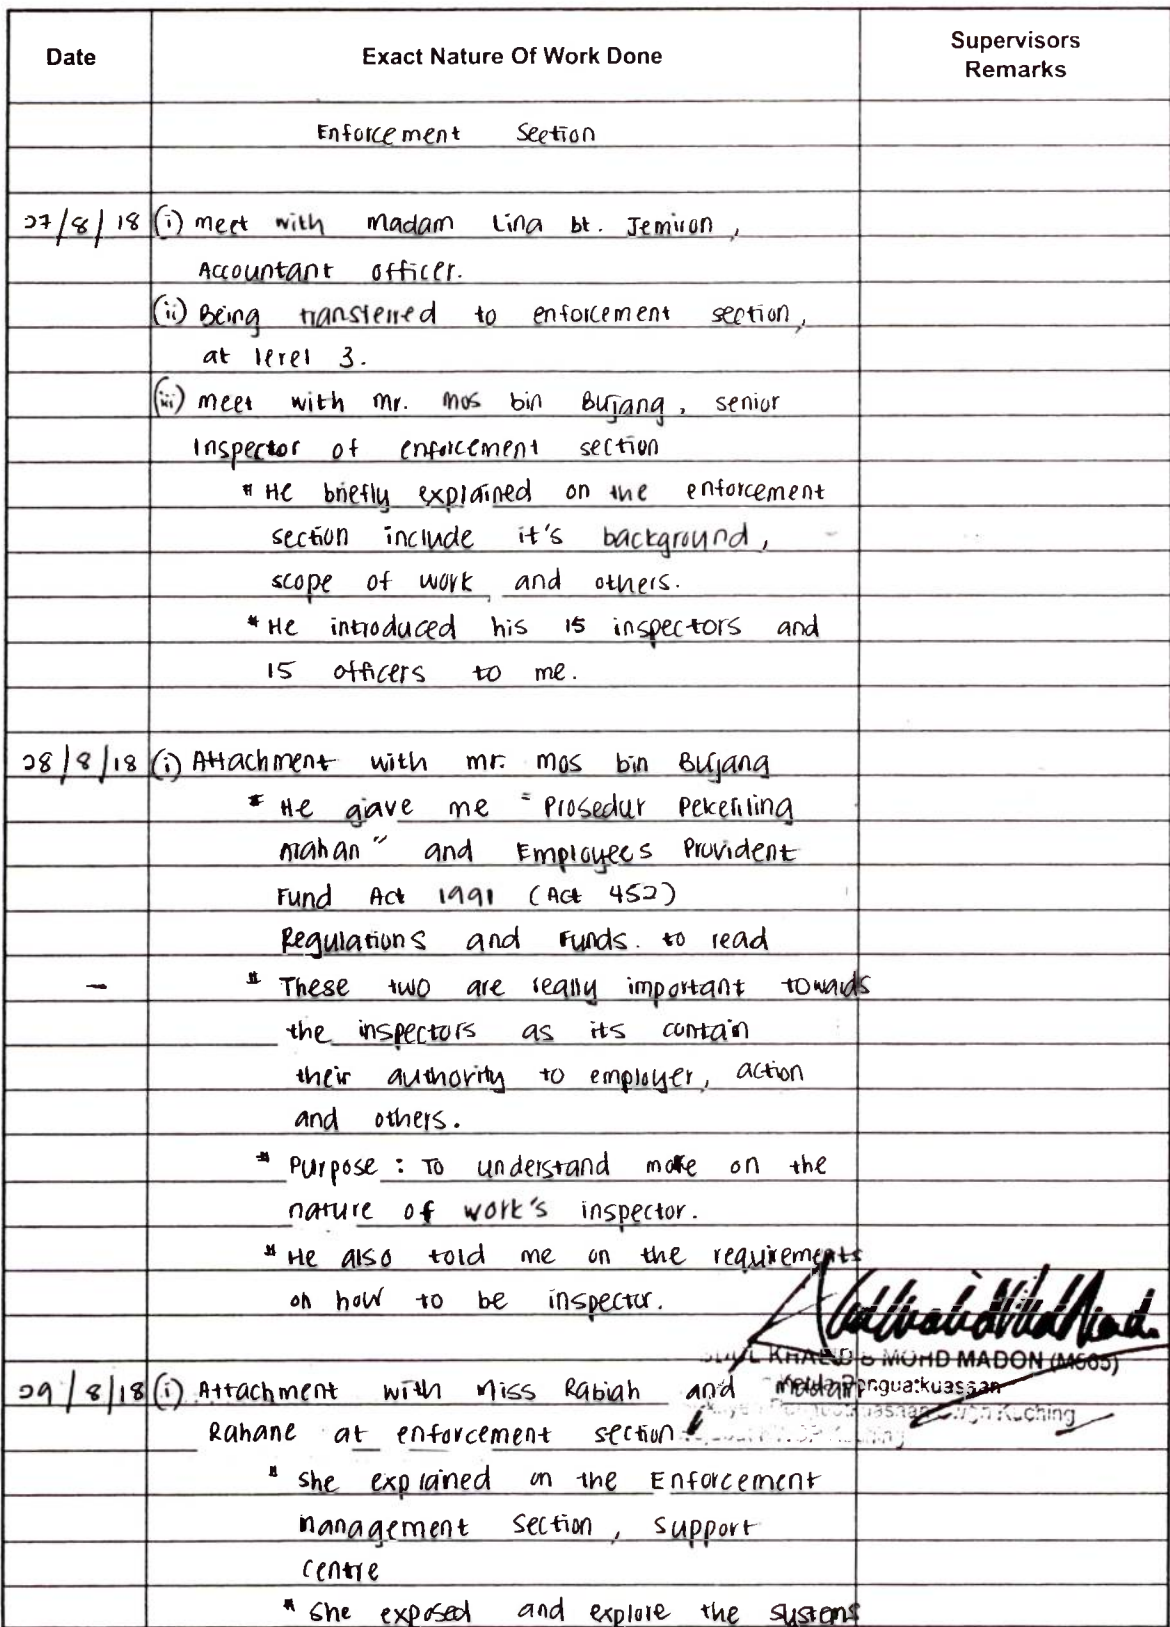 Date Exact Nature Of Work Done Supervisors Remarks
Enforcement Section
27/8/18 (i) meet with Madam Lina bt. Jemiron,
Accountant officer.
(ii) Being transferred to enforcement section,
at level 3.
(iii) meet with mr. Mos bin Bujang, senior
Inspector of enforcement section
* He briefly explained on the enforcement
section include it's background,
scope of work, and others.
* He introduced his 15 inspectors and
15 officers to me.
28/8/18 (i) Attachment with mr. mos bin Bujang
* He gave me "Prosedur Pekeliling
Arahan" and Employees Provident
Fund Act 1991 (Act 452)
Regulations and Funds. to read
- * These two are really important towards
the inspectors as its contain
their authority to employer, action
and others.
* Purpose : To understand more on the
nature of work's inspector.
* He also told me on the requirements
on how to be inspector.
KHALID B MOHD MADON (M565)
29/8/18 (i) Attachment with Miss Rabiah and madam
Ketua Penguatkuasaan
Kuching
Rahane at enforcement section
* She explained on the Enforcement
Management Section, Support
Centre
* She exposed and explore the systems